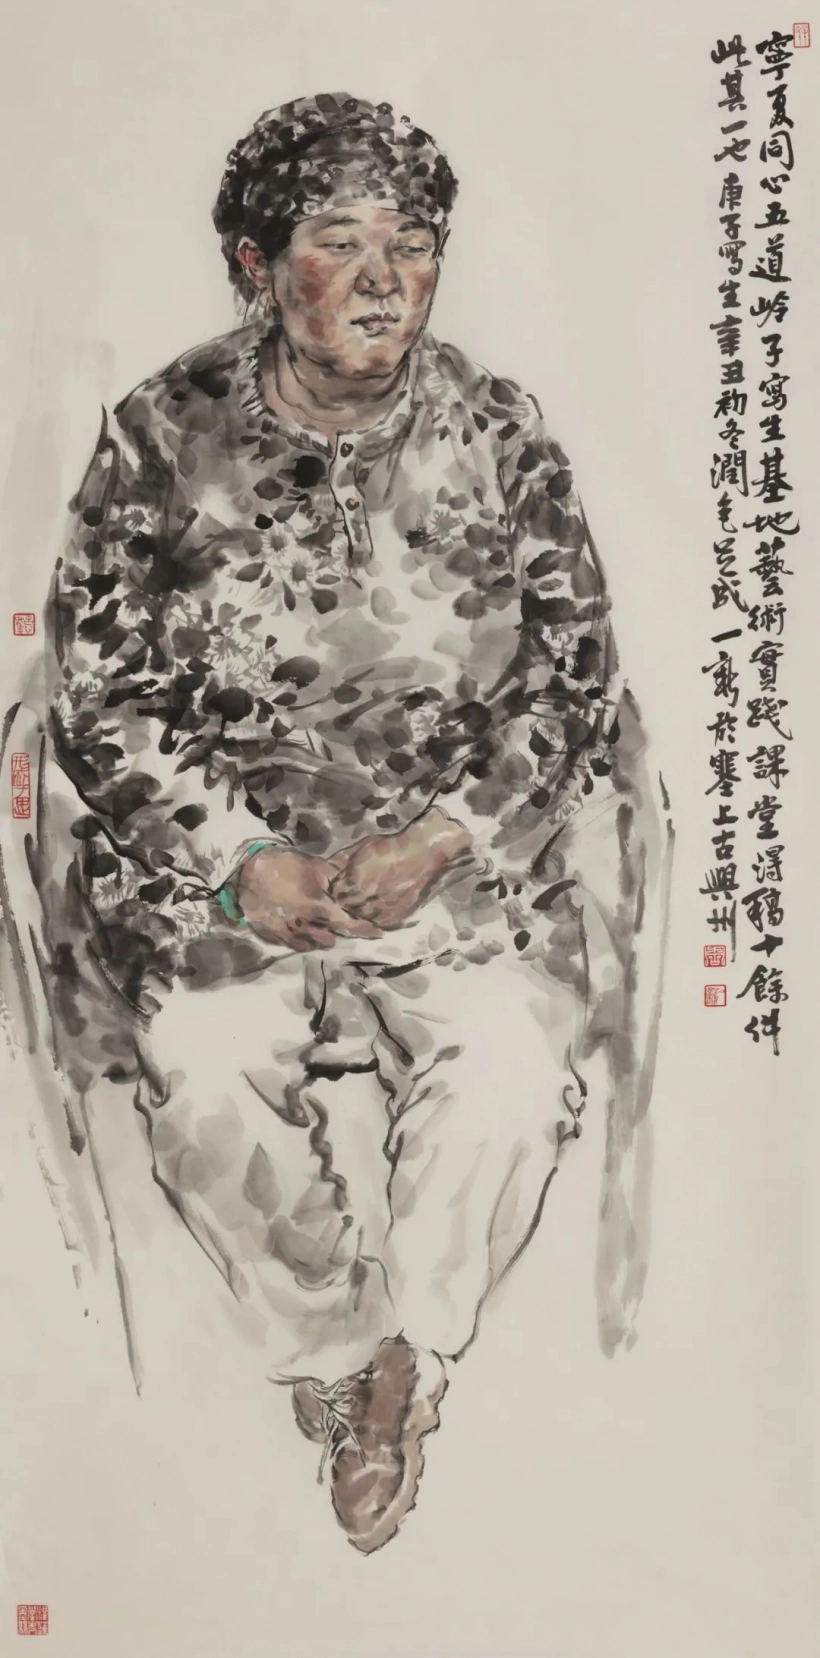 寧夏同心五道岭子寫生基地藝術實踐課堂得稿十餘件
此其一也庚子寫生辛丑初冬潤色是成一新於塞上古興州